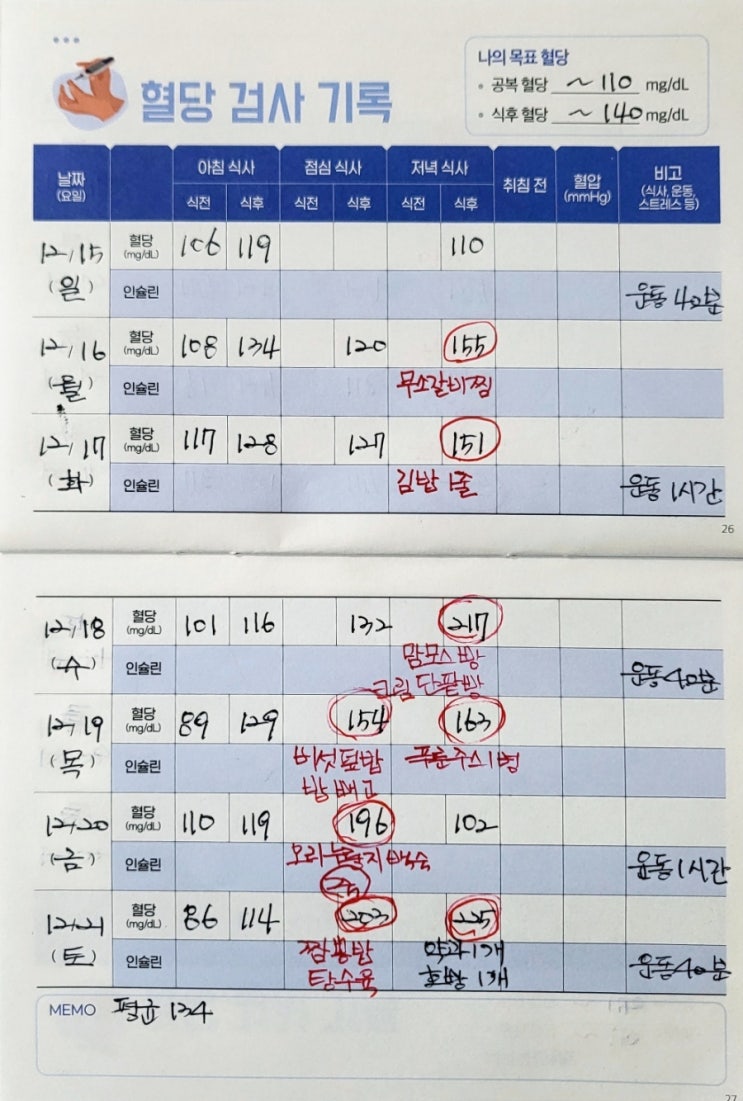 혈당 검사 기록
나의 목표 혈당
• 공복 혈당 ~110 mg/dL
• 식후 혈당 ~140 mg/dL
날짜 (요일) 아침 식사 점심 식사 저녁 식사 취침 전 혈압 (mmHg) 비고 (식사, 운동, 스트레스 등)
식전 식후 식전 식후 식전 식후
12/15 혈당 (mg/dL) 106 119 110
(일) 인슐린 운동 40분
12/16 혈당 (mg/dL) 108 134 120 155
(월) 인슐린 무소갈비찜
12/17 혈당 (mg/dL) 117 128 127 151
(화) 인슐린 김밥 1줄 운동 1시간
26
12/18 혈당 (mg/dL) 101 116 132 217
(수) 인슐린 맘모스빵 운동 40분
크림 단팥빵
12/19 혈당 (mg/dL) 89 129 154 163
(목) 인슐린 버섯덮밥 푸룬주스 1병
밥 빼고
12/20 혈당 (mg/dL) 110 119 196 102
(금) 인슐린 오리누룽지백숙 운동 1시간
12/21 혈당 (mg/dL) 86 114 203 225
(토) 인슐린 짬뽕밥 약과 1개 운동 40분
탕수육 호빵 1개
MEMO 평균 134
27